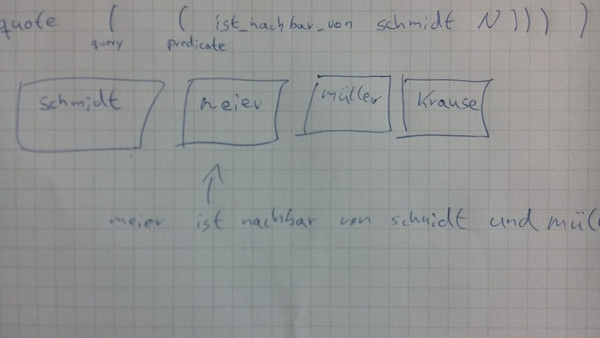 quote ( ( ist_nachbar_von schmidt N ) ) ) )
query predicate
schmidt meier müller Krause
meier ist nachbar von schmidt und